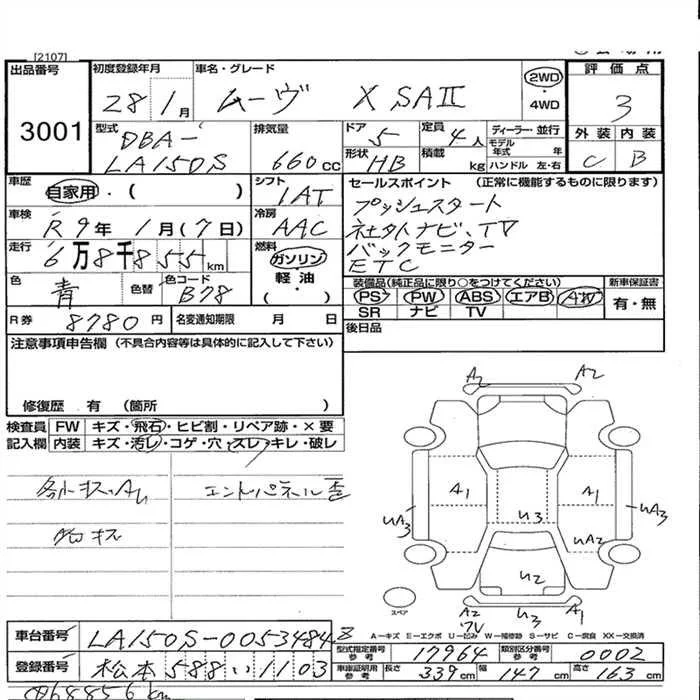 [2107]
出品番号 初度登録年月 車名・グレード 2WD 評価点
3001 28年1月 ムーヴ X SAⅡ ・4WD 3
型式 DBA- 排気量 ドア 5 定員 4人 ディーラー・並行 外装 内装
LA150S 660cc 形状 HB 積載 kg モデル年式 年 ハンドル 左・右 C B
車歴 自家用・( ) シフト 1AT セールスポイント (正常に機能するものに限ります)
車検 R9年1月(7日) 冷房 AAC プッシュスタート
走行 6万8千855km 燃料 ガソリン 社外ナビ、TV
軽油 バックモニター
( ) ETC
色 青 色替 色コード B78 装備品(純正品に限り○をつけてください) 新車保証書
PS PW ABS エアB AW 有・無
R券 8780円 名変通知期限 月 日 SR ナビ TV
注意事項申告欄 (不具合内容等は具体的に記入して下さい) 後日品
修復歴 有 (箇所 )
検査員 FW キズ・飛石・ヒビ割・リペア跡・×要
記入欄 内装 キズ・汚レ・コゲ・穴・スレ・キレ・破レ
A2 A2
A1 A1
UA3 U3 UA2 UA3
U2
A2 U3 A1
スペア
A−キズ E−エクボ U−凹み W−補修跡 S−サビ C−腐食 XX−交換済
車台番号 LA150S-0053484 型式指定番号 参考 17964 類別区分番号 参考 0002
登録番号 松本 588 い 1103 車庫証明用 参考 長さ 339cm 幅 147cm 高さ 163cm
068856km